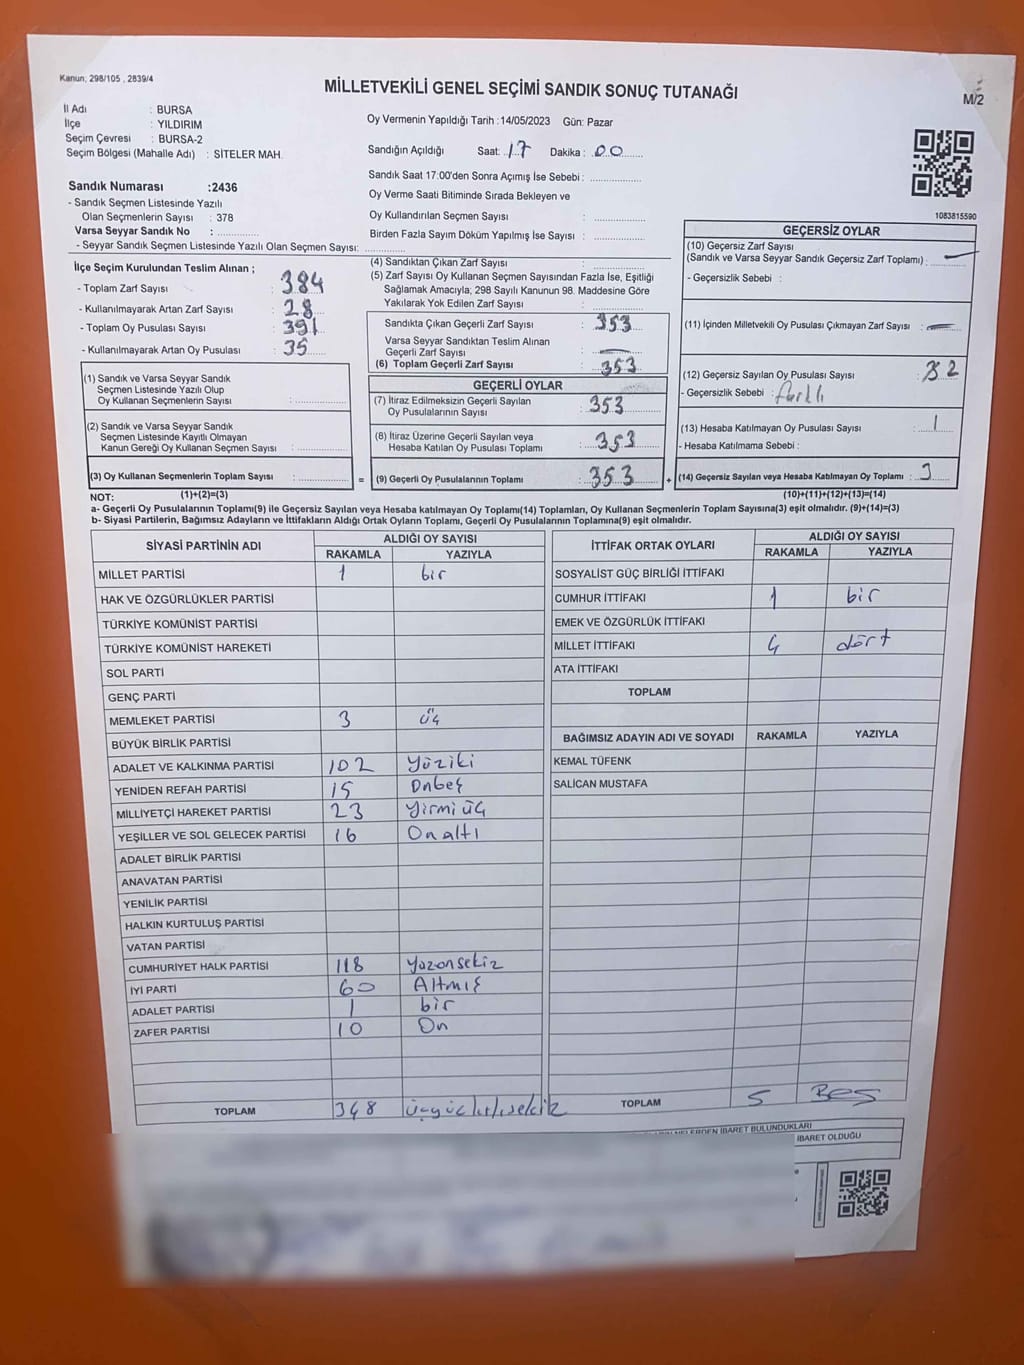 Kanun; 298/105 , 2839/4
MİLLETVEKİLİ GENEL SEÇİMİ SANDIK SONUÇ TUTANAĞI
M/2
İl Adı : BURSA
İlçe : YILDIRIM
Seçim Çevresi : BURSA-2
Seçim Bölgesi (Mahalle Adı) : SİTELER MAH.
Oy Vermenin Yapıldığı Tarih :14/05/2023 Gün: Pazar
Sandığın Açıldığı Saat: 17 Dakika : 00
Sandık Saat 17:00'den Sonra Açımış İse Sebebi :
Oy Verme Saati Bitiminde Sırada Bekleyen ve
Oy Kullandırılan Seçmen Sayısı :
Birden Fazla Sayım Döküm Yapılmış İse Sayısı :
Sandık Numarası :2436
- Sandık Seçmen Listesinde Yazılı
Olan Seçmenlerin Sayısı : 378
Varsa Seyyar Sandık No :
- Seyyar Sandık Seçmen Listesinde Yazılı Olan Seçmen Sayısı:
1083815590
İlçe Seçim Kurulundan Teslim Alınan ;
- Toplam Zarf Sayısı : 384
- Kullanılmayarak Artan Zarf Sayısı : 28
- Toplam Oy Pusulası Sayısı : 391
- Kullanılmayarak Artan Oy Pusulası : 35
(1) Sandık ve Varsa Seyyar Sandık
Seçmen Listesinde Yazılı Olup
Oy Kullanan Seçmenlerin Sayısı :
(2) Sandık ve Varsa Seyyar Sandık
Seçmen Listesinde Kayıtlı Olmayan
Kanun Gereği Oy Kullanan Seçmen Sayısı :
(3) Oy Kullanan Seçmenlerin Toplam Sayısı :
(4) Sandıktan Çıkan Zarf Sayısı :
(5) Zarf Sayısı Oy Kullanan Seçmen Sayısından Fazla İse, Eşitliği
Sağlamak Amacıyla; 298 Sayılı Kanunun 98. Maddesine Göre
Yakılarak Yok Edilen Zarf Sayısı :
Sandıkta Çıkan Geçerli Zarf Sayısı : 353
Varsa Seyyar Sandıktan Teslim Alınan
Geçerli Zarf Sayısı : —
(6) Toplam Geçerli Zarf Sayısı : 353
GEÇERLİ OYLAR
(7) İtiraz Edilmeksizin Geçerli Sayılan
Oy Pusulalarının Sayısı : 353
(8) İtiraz Üzerine Geçerli Sayılan veya
Hesaba Katılan Oy Pusulası Toplamı : 353
= (9) Geçerli Oy Pusulalarının Toplamı : 353 +
GEÇERSİZ OYLAR
(10) Geçersiz Zarf Sayısı
(Sandık ve Varsa Seyyar Sandık Geçersiz Zarf Toplamı) : —
- Geçersizlik Sebebi :
(11) İçinden Milletvekili Oy Pusulası Çıkmayan Zarf Sayısı : —
(12) Geçersiz Sayılan Oy Pusulası Sayısı : 2
- Geçersizlik Sebebi : farklı
(13) Hesaba Katılmayan Oy Pusulası Sayısı : 1
- Hesaba Katılmama Sebebi :
(14) Geçersiz Sayılan veya Hesaba Katılmayan Oy Toplamı : 3
NOT: (1)+(2)=(3)
(10)+(11)+(12)+(13)=(14)
a- Geçerli Oy Pusulalarının Toplamı(9) ile Geçersiz Sayılan veya Hesaba katılmayan Oy Toplamı(14) Toplamları, Oy Kullanan Seçmenlerin Toplam Sayısına(3) eşit olmalıdır. (9)+(14)=(3)
b- Siyasi Partilerin, Bağımsız Adayların ve İttifakların Aldığı Ortak Oyların Toplamı, Geçerli Oy Pusulalarının Toplamına(9) eşit olmalıdır.
SİYASİ PARTİNİN ADI ALDIĞI OY SAYISI
RAKAMLA YAZIYLA
MİLLET PARTİSİ 1 bir
HAK VE ÖZGÜRLÜKLER PARTİSİ
TÜRKİYE KOMÜNİST PARTİSİ
TÜRKİYE KOMÜNİST HAREKETİ
SOL PARTİ
GENÇ PARTİ
MEMLEKET PARTİSİ 3 üç
BÜYÜK BİRLİK PARTİSİ
ADALET VE KALKINMA PARTİSİ 102 Yüziki
YENİDEN REFAH PARTİSİ 15 Onbeş
MİLLİYETÇİ HAREKET PARTİSİ 23 Yirmi üç
YEŞİLLER VE SOL GELECEK PARTİSİ 16 On altı
ADALET BİRLİK PARTİSİ
ANAVATAN PARTİSİ
YENİLİK PARTİSİ
HALKIN KURTULUŞ PARTİSİ
VATAN PARTİSİ
CUMHURİYET HALK PARTİSİ 118 Yüzonsekiz
İYİ PARTİ 60 Altmış
ADALET PARTİSİ 1 bir
ZAFER PARTİSİ 10 On
TOPLAM 348
İTTİFAK ORTAK OYLARI ALDIĞI OY SAYISI
RAKAMLA YAZIYLA
SOSYALİST GÜÇ BİRLİĞİ İTTİFAKI
CUMHUR İTTİFAKI 1 bir
EMEK VE ÖZGÜRLÜK İTTİFAKI
MİLLET İTTİFAKI 4 dört
ATA İTTİFAKI
TOPLAM
BAĞIMSIZ ADAYIN ADI VE SOYADI RAKAMLA YAZIYLA
KEMAL TÜFENK
SALİCAN MUSTAFA
TOPLAM 5 Beş
İBARET BULUNDUKLARI
İBARET OLDUĞU